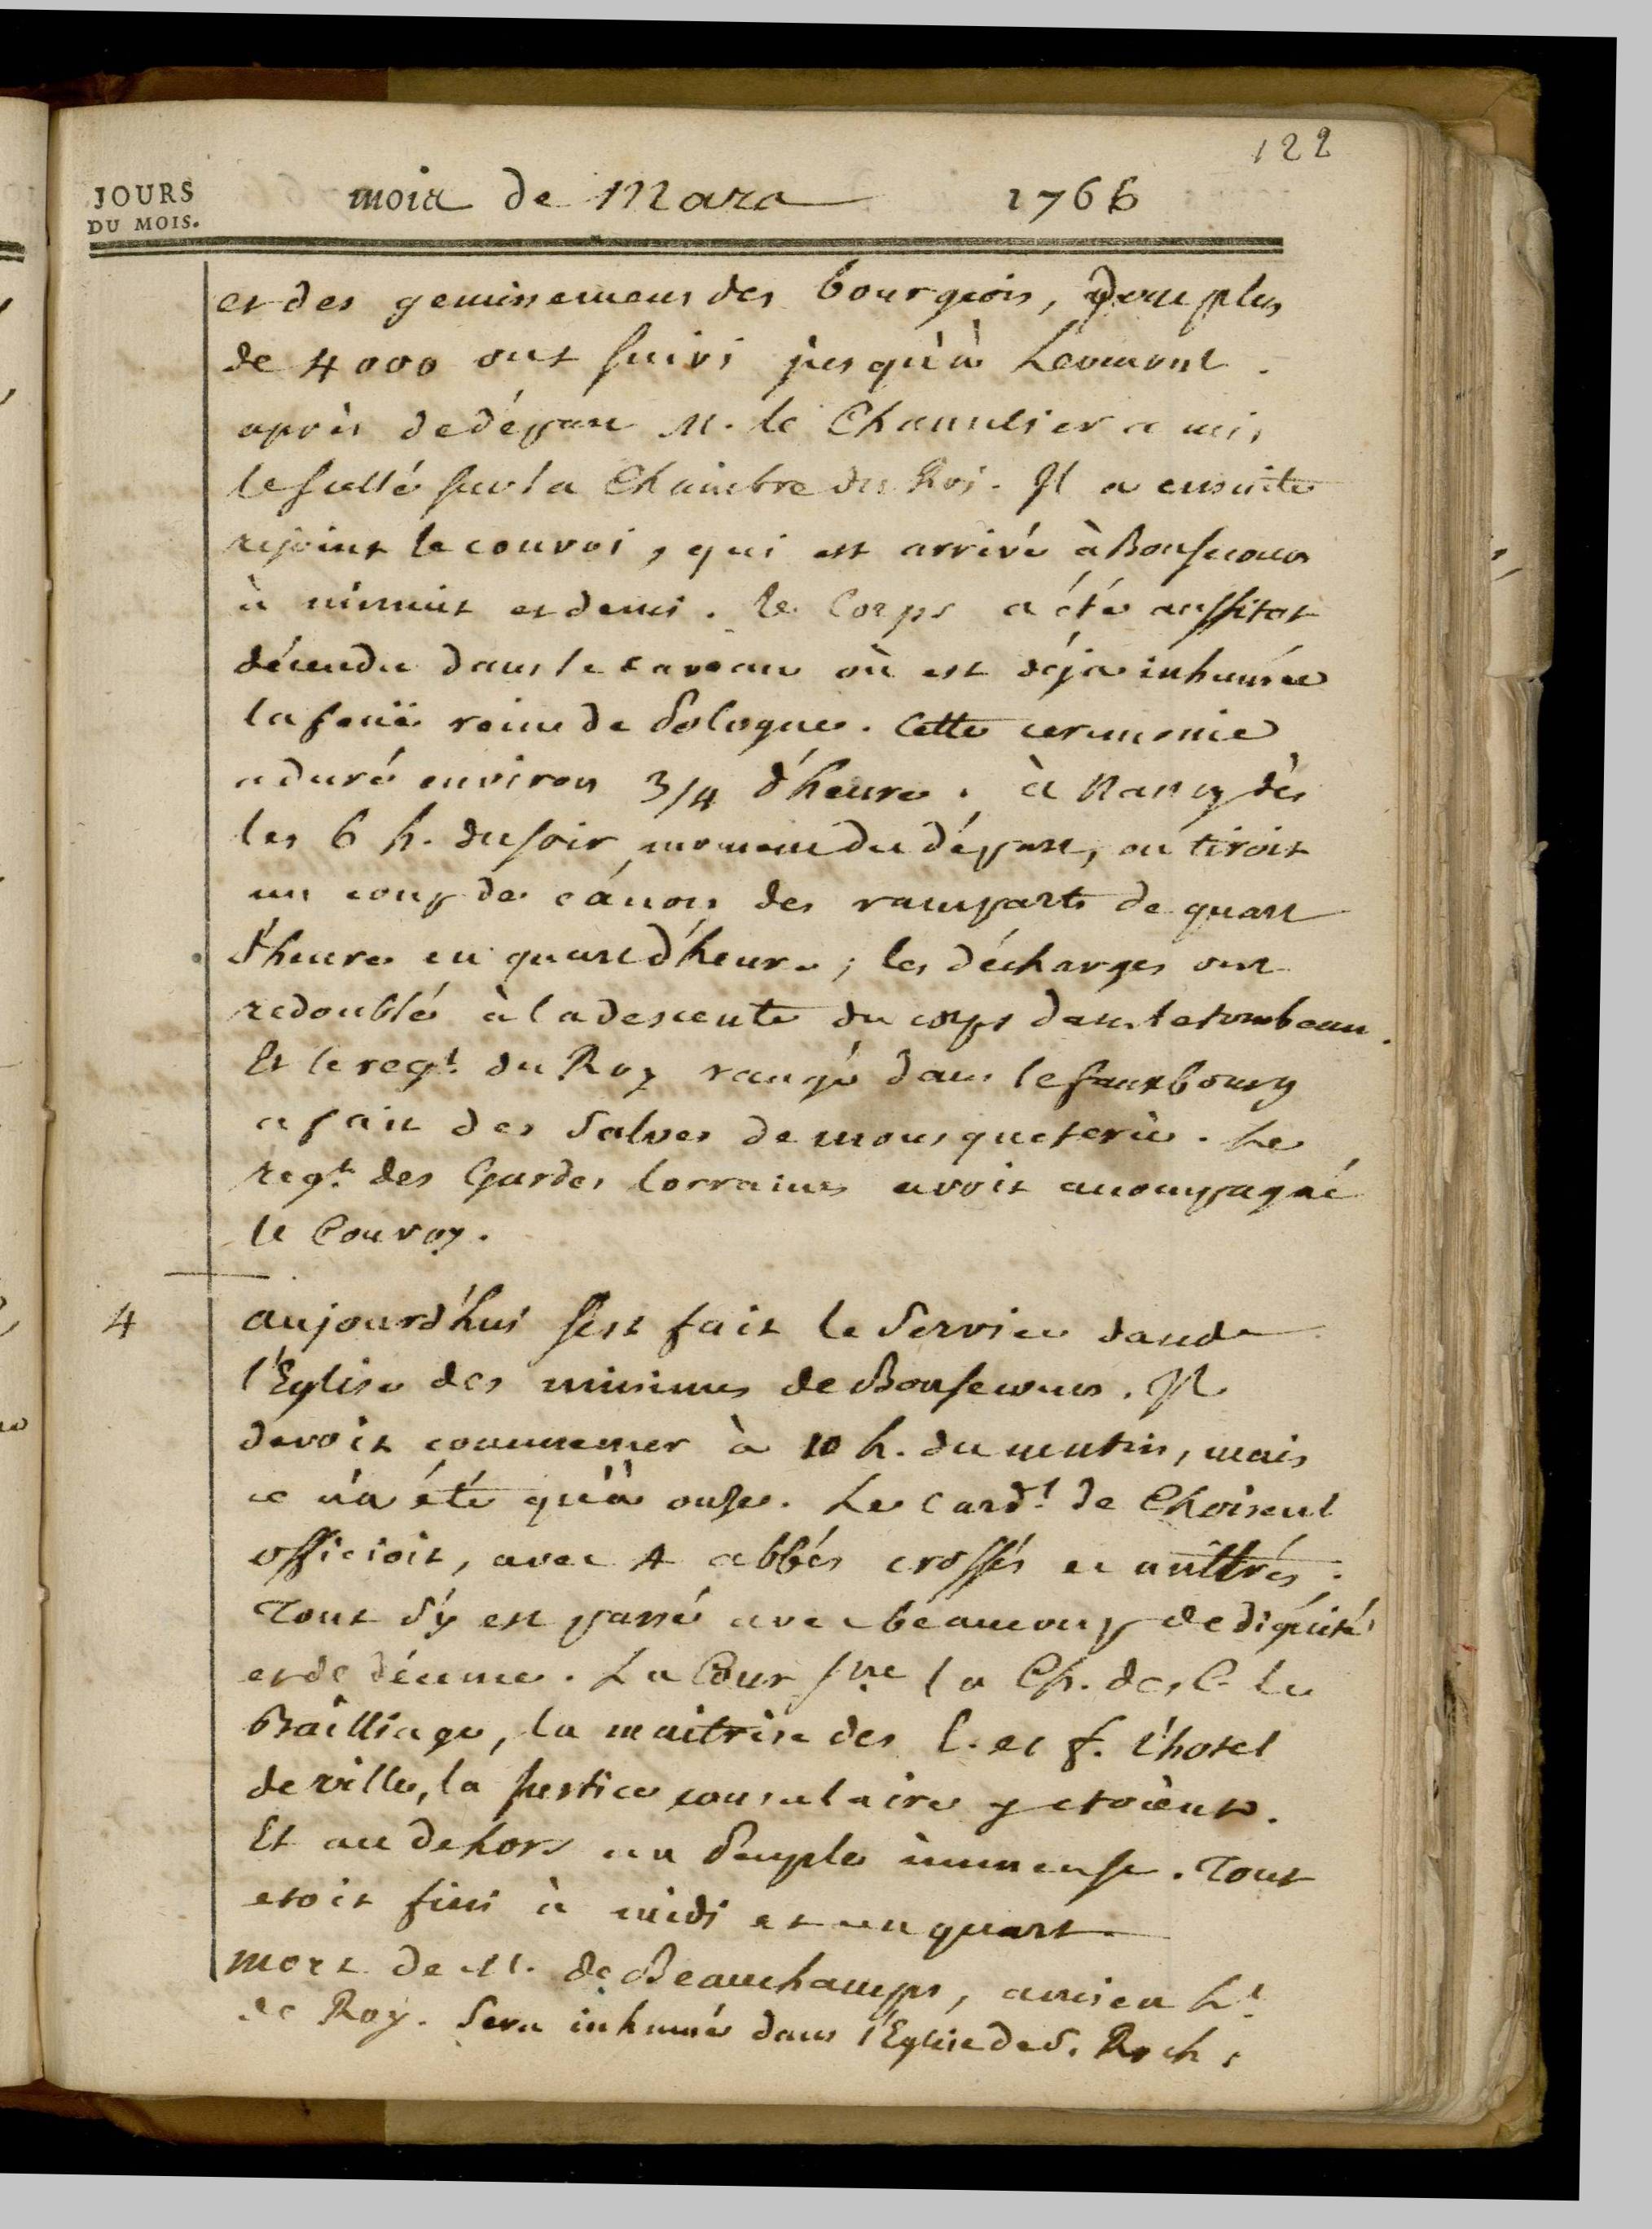 122
JOURS
DU MOIS.
mois de Mars 1766
et des gemissemens des bourgeois, dont plus
de 4000 ont suivi jusqu'à Leomont.
après le départ M. le Chancelier a mis
le scellé sur la Chambre du Roi. Il a ensuite
rejoint le convoi, qui est arrivé à Bonsecours
à minuit et demi. Le Corps a été aussitot
décendu dans le caveau où est déja inhumée
la feuë reine de Pologne. Cette ceremonie
a duré environ 3/4 d'heure. à Nancy dès
les 6 h. du soir, moment du départ, on tiroit
un coup de cánon des ramparts de quart
d'heure en quart d'heure; les décharges ont
redoublé à la descente du corps dans le tombeau.
Et le regt. du Roy rangé dans le fauxbourg
a fait des Salves de mousqueterie. Le
regt. des Gardes lorraines avoit accompagné
le Convoy.
4
aujourd'hui s'est fait le Service dans
l'Eglise des minimes de Bonsecours. Il
devoit commencer à 10 h. du matin, mais
ce n'a été qu'à onze. Le Cardl. de Choiseul
officioit, avec 4 abbés crossés et mittrés;
Tout s'y est passé avec beaucoup de dignité
et de décence. La Cour sne la Ch. des C. le
Bailliage, la maitrise des E. et f. l'hotel
de ville, la justice consulaire y etoient.
Et au dehors un Peuple immense. Tout
etoit fini à midi et un quart.
mort de M. de Beauchamps, ancien Lt.
de Roy. Sera inhumé dans l'Eglise de S. Roch.